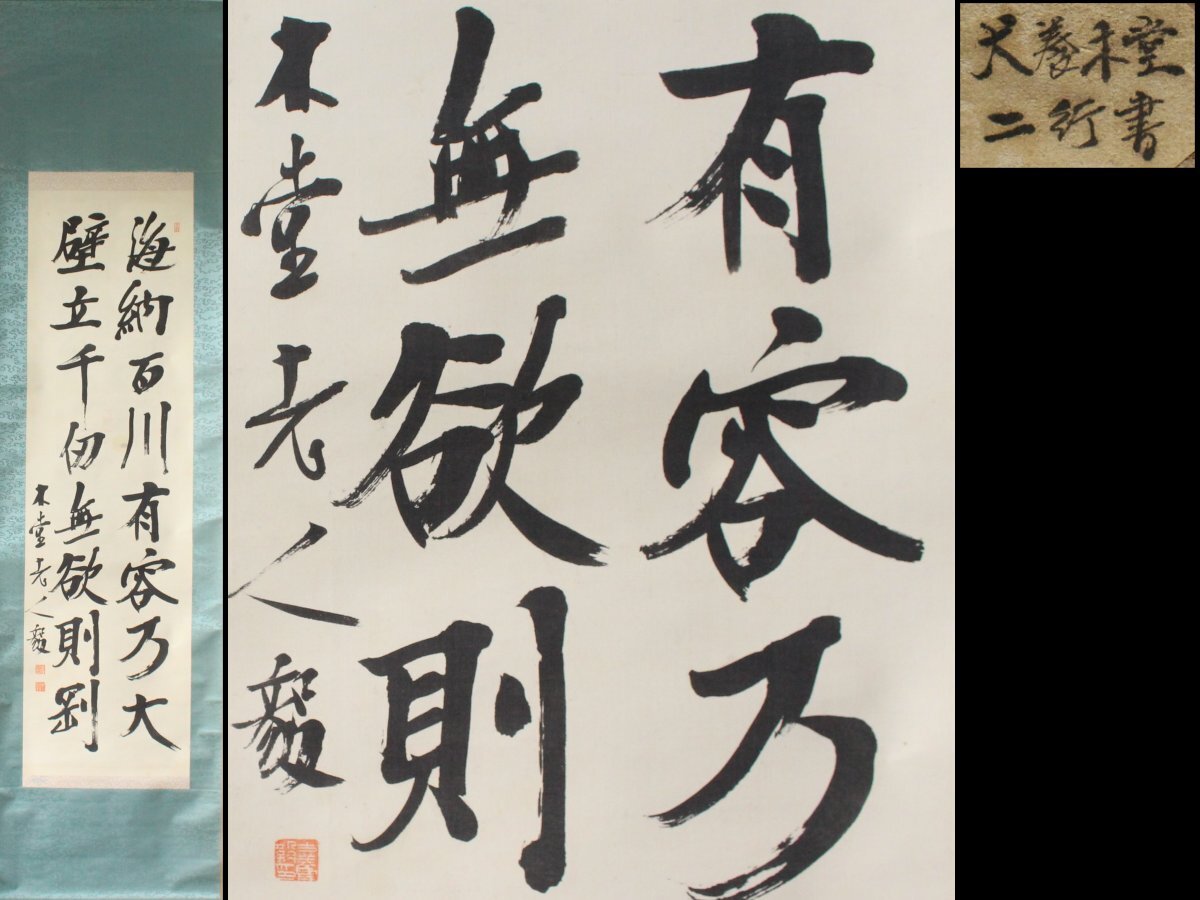 海納百川有容乃大
壁立千仞無欲則剛
木堂老人毅
有容乃
無欲則
木堂老人毅
犬養木堂
二行書